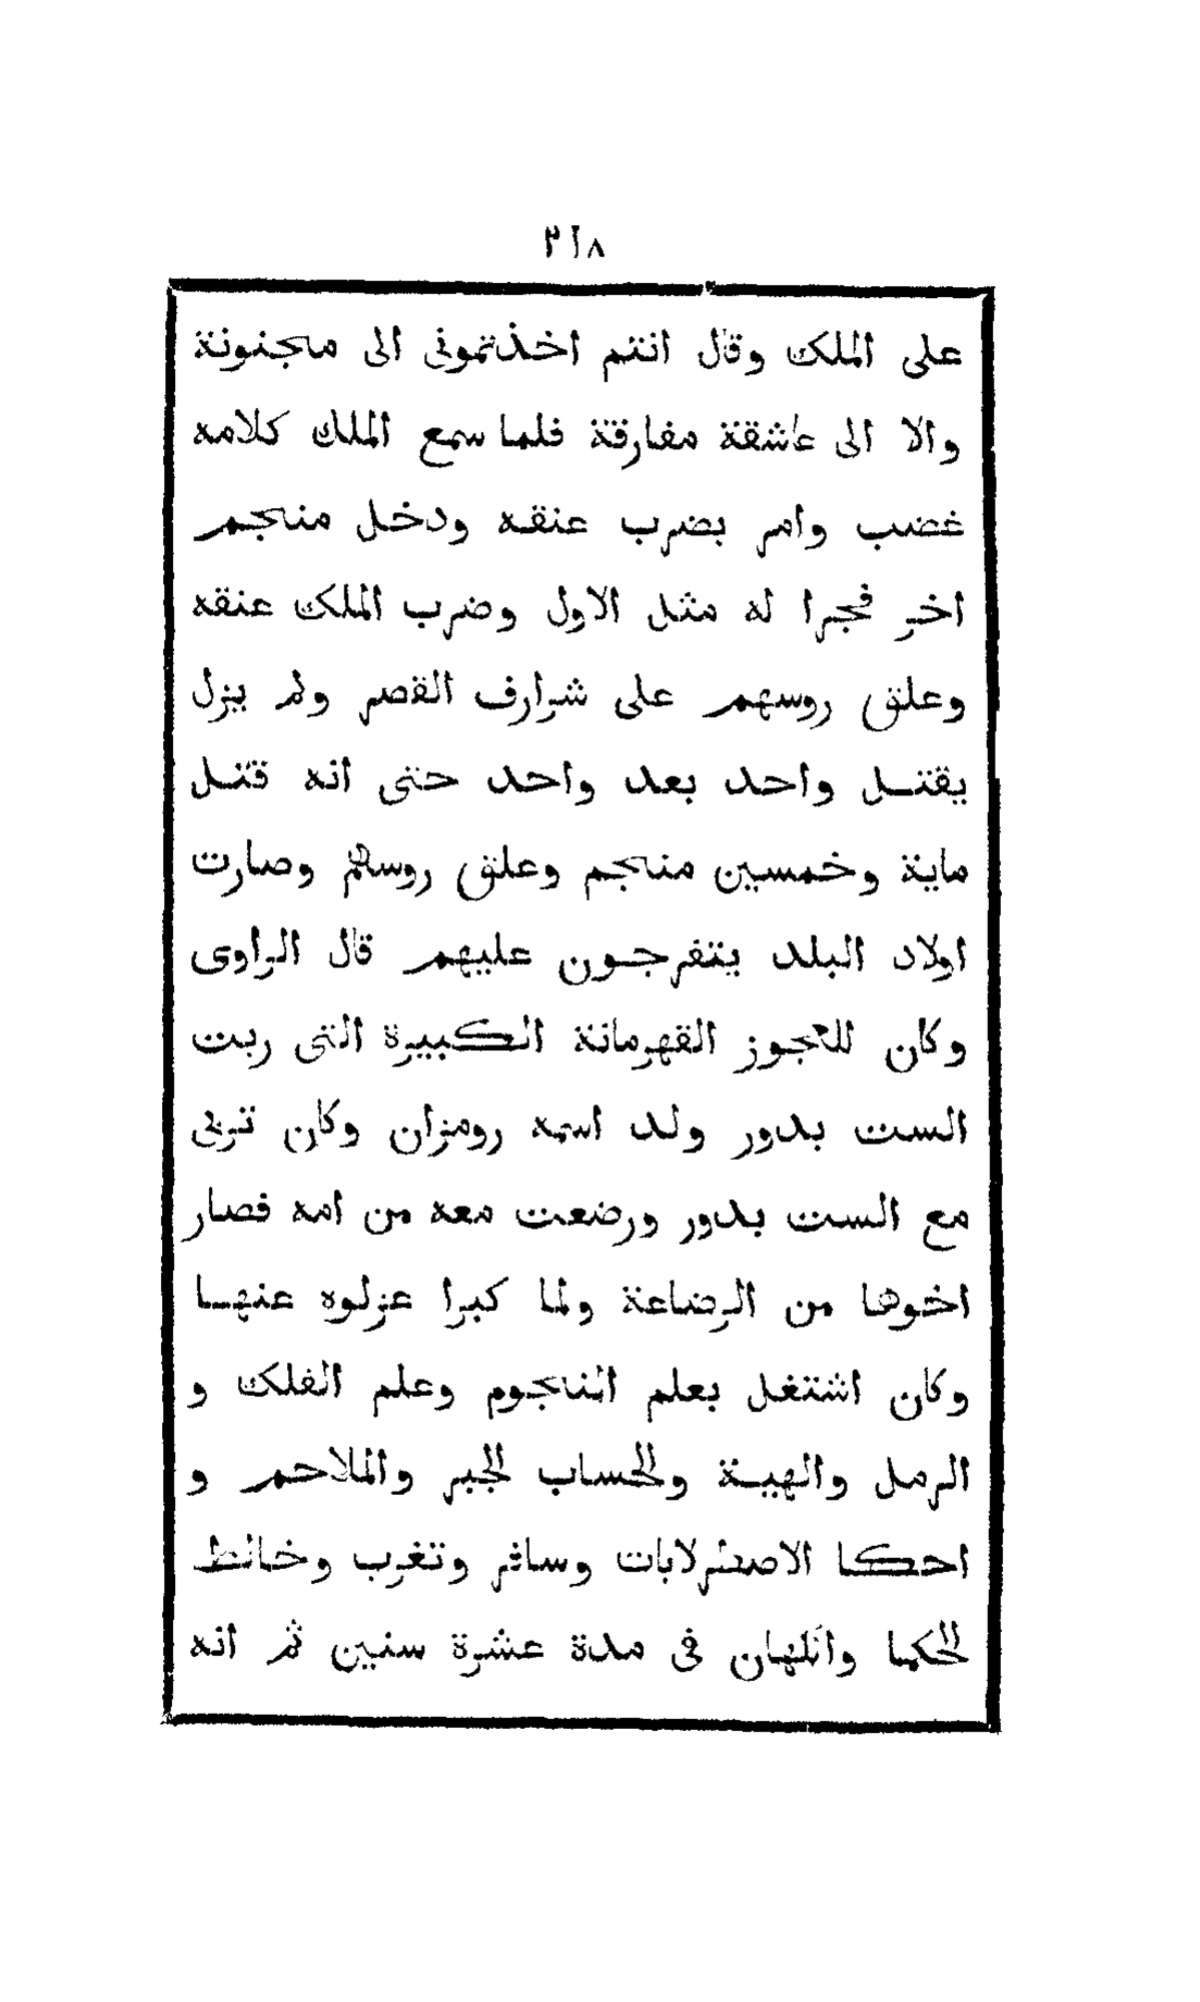 ٢١٨
على الملك وقال انتم اخذتمونى الى مجنونة
والا الى عاشقة مفارقة فلما سمع الملك كلامه
غضب وامر بضرب عنقه ودخل منجم
اخر فجرا له مثل الاول وضرب الملك عنقه
وعلق روسهم على شرارف القصر ولم يزل
يقتل واحد بعد واحد حتى انه قتل
ماية وخمسين منجم وعلق روسهم وصارت
اولاد البلد يتفرجون عليهم قال الراوى
وكان للعجوز القهرمانة الكبيرة التى ربت
الست بدور ولد اسمه رومزان وكان تربى
مع الست بدور ورضعت معه من امه فصار
اخوها من الرضاعة ولما كبرا عزلوه عنها
وكان اشتغل بعلم النجوم وعلم الفلك و
الرمل والهية والحساب الجبر والملاحم و
احكا الاصطرلابات وسافر وتغرب وخالط
الحكما والكهان فى مدة عشرة سنين ثم انه